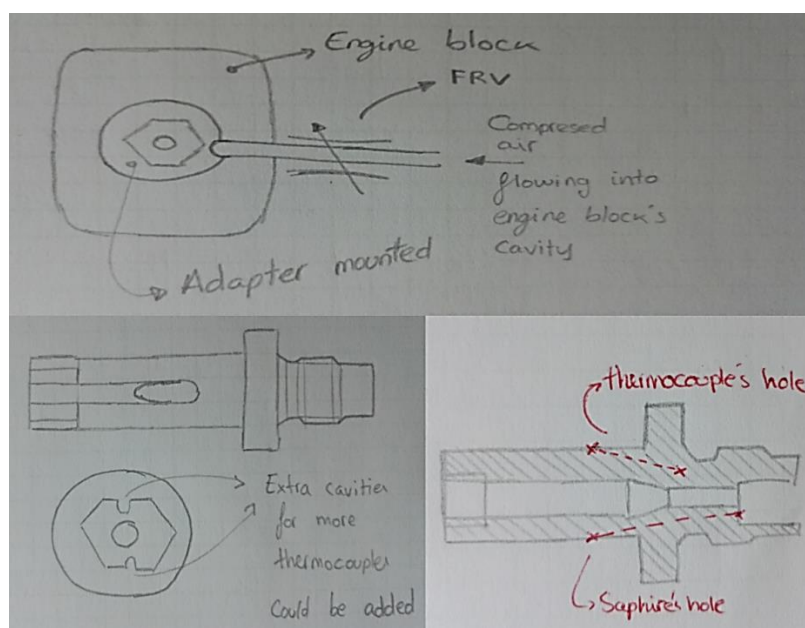 Engine block
FRV
Compresed
air
flowing into
engine block's
cavity
Adapter mounted
Extra cavities
for more
thermocouples
Could be added
thermocouple's hole
Saphire's hole